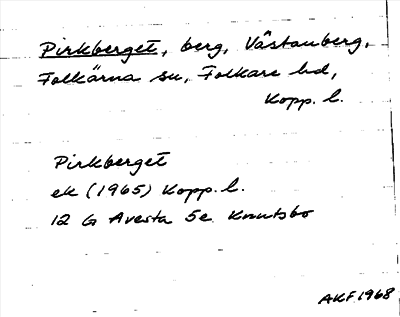 Pirkberget, berg, Västanberg,
Folkärna sn, Folkare hd,
Kopp. l.
Pirkberget
ek (1965) Kopp. l.
12 G Avesta 5e Knutsbo
AKF 1968